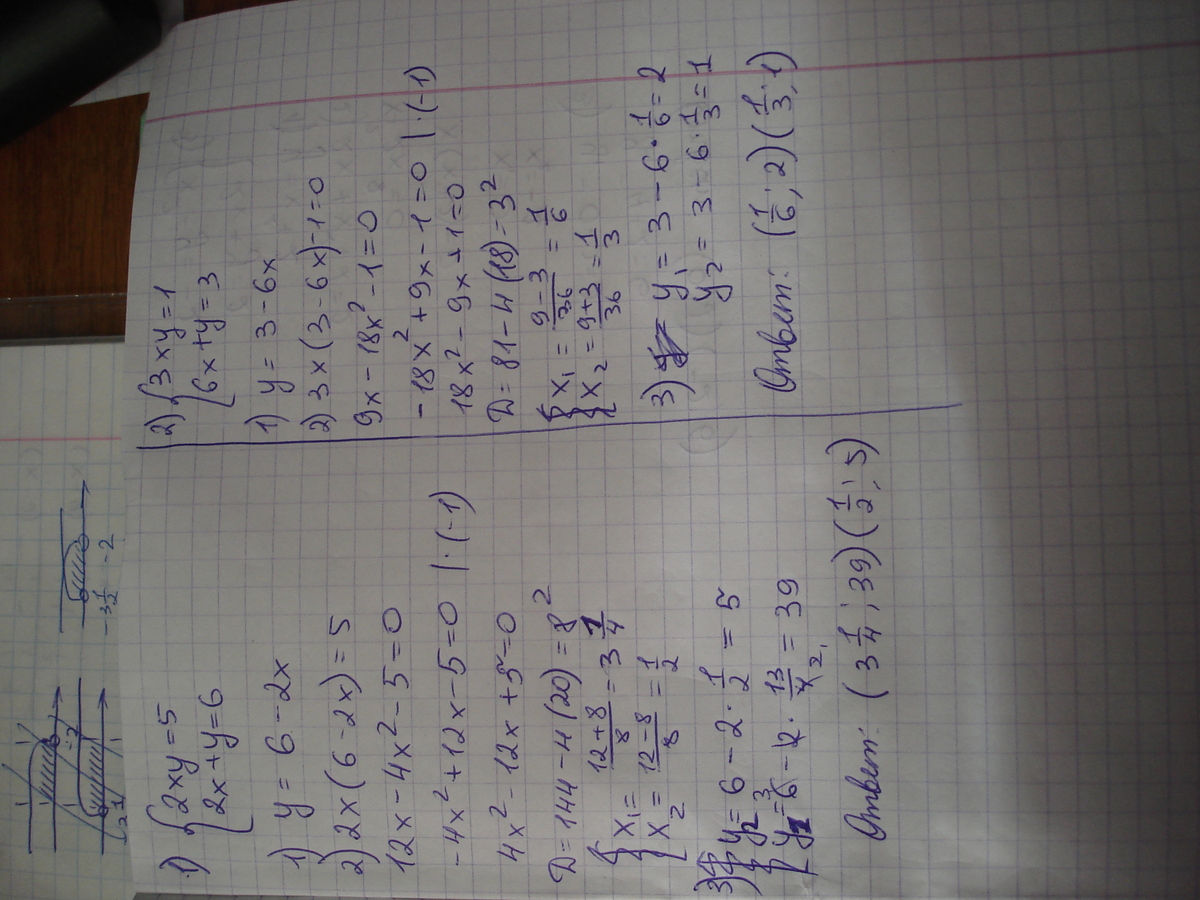 1) {2xy=5
2x+y=6
1) y = 6-2x
2) 2x(6-2x)=5
12x-4x²-5=0
-4x²+12x-5=0 |·(-1)
4x²-12x+5=0
D=144-4(20)=8²
x₁= (12+8)/8 = 3 1/4
x₂= (12-8)/8 = 1/2
3) y₂=6-2·1/2=5
y₁= 6-2·13/4=39
Ответ: (3 1/4; 39)(1/2; 5)
2) {3xy=1
6x+y=3
1) y=3-6x
2) 3x(3-6x)-1=0
9x-18x²-1=0
-18x²+9x-1=0 |·(-1)
18x²-9x+1=0
D=81-4(18)=3²
x₁= (9-3)/36 = 1/6
x₂= (9+3)/36 = 1/3
3) y₁=3-6·1/6=2
y₂=3-6·1/3=1
Ответ: (1/6; 2)(1/3; 1)
-3 1/2 -2